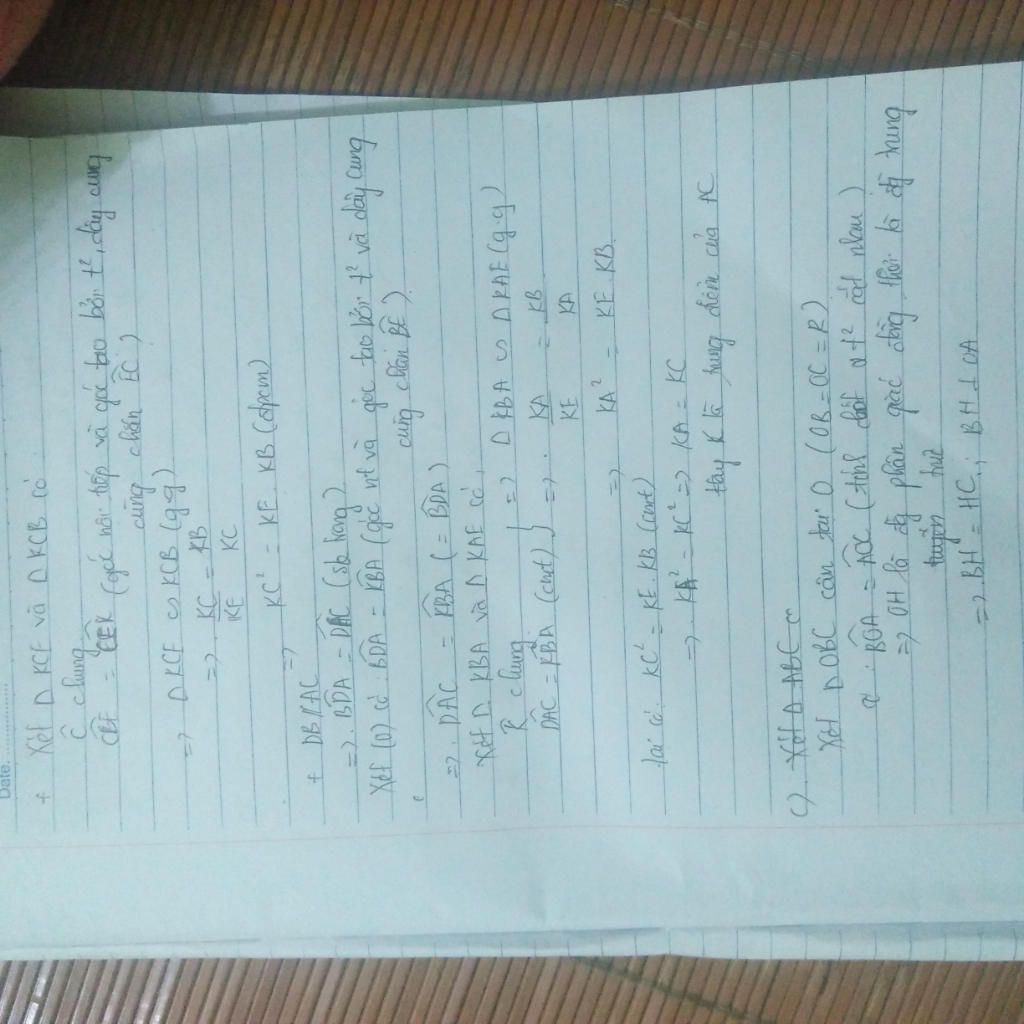 Date...............
+ Xét Δ KCE và Δ KCB có
Ĉ chung
CBE = CEK (góc nội tiếp và góc tạo bởi t², dây cung
cùng chắn EC)
=> Δ KCE ∽ KCB (g.g)
=> KC/KE = KB/KC
=> KC² = KE. KB (đpcm)
+ DB//AC
=> BDA = DAC (sle trong)
Xét (O) có: BDA = KBA (góc nt và góc tạo bởi t² và dây cung
cùng chắn BE)
=> DAC = KBA (= BDA)
Xét Δ KBA và Δ KAE có,
K chung
DAC = KBA (cmt) } => Δ KBA ∽ Δ KAE (g.g)
=> KA/KE = KB/KA
=> KA² = KE. KB
lại có. KC² = KE. KB (cmt)
=> KA² = KC² => KA = KC
hay K là trung điểm của AC
c). Xét Δ ABC
Xét Δ OBC cân tại O (OB = OC = R)
có: BOA = AOC (tính chất 2 t² cắt nhau)
=> OH là đg phân giác đồng thời là đg trung
tuyến trực
=> BH = HC; BH ⊥ OA